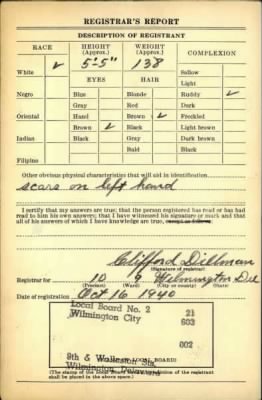 REGISTRAR'S REPORT
DESCRIPTION OF REGISTRANT
RACE HEIGHT (Approx.) WEIGHT (Approx.) COMPLEXION
White ✓ 5'-5" 138 Sallow
EYES HAIR Light
Negro Blue Blonde Ruddy ✓
Gray Red Dark
Oriental Hazel Brown ✓ Freckled
Brown ✓ Black Light brown
Indian Black Gray Dark brown
Bald Black
Filipino
Other obvious physical characteristics that will aid in identification
scars on left hand
I certify that my answers are true; that the person registered has read or has had
read to him his own answers; that I have witnessed his signature or mark and that
all of his answers of which I have knowledge are true, except as follows:
Clifford Dillman
(Signature of registrar)
Registrar for 10 9 Wilmington Del
(Precinct) (Ward) (City or county) (State)
Date of registration Oct 16 1940
Local Board No. 2 21
Wilmington City 603
002
9th & Wollaston Sts.
Wilmington, Delaware
(The stamp of the Local Board having jurisdiction of the registrant
shall be placed in the above space.)